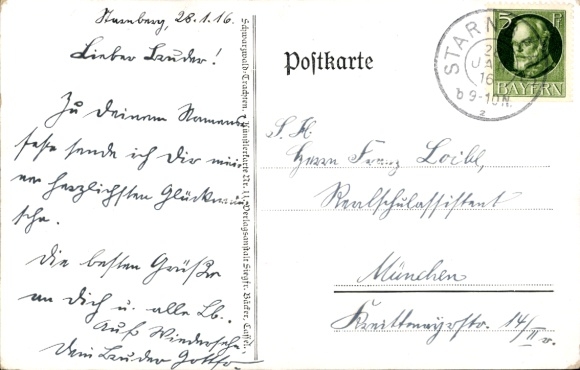 Starnberg, 28.1.16.
Lieber Bruder!
Zu Deinem Namens-
feste sende ich Dir mei-
nen herzlichsten Glückwun-
sche.
Die besten Grüße
an Dich u. alle Lb.
Auf Wiederseh
Dein Bruder Gottfr
Schwarzwald-Trachten. Künstlerkarte Nr. 11. Verlagsanstalt Siegfr. Bäcker, Cassel.
Postkarte
5 Pf
BAYERN
STARN
JA
16
b 9-10 N.
2
S. H.
Herrn Franz Loibl,
Realschulassistent
München
Kreittmayrstr. 14/II r.